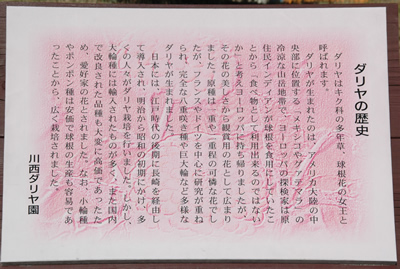 ダリヤの歴史
ダリヤはキク科の多年草、球根花の女王と
呼ばれます。
ダリヤが生まれたのは、アメリカ大陸の中
央部に位置する「メキシコやグアテマラ」の
冷涼な山岳地帯で、ヨーロッパの探検家は原
住民インデイアンが球根を食用にしていたこ
とから「食べ物として利用出来るのではない
か」と考えヨーロッパに持ち帰りましたが、
その花の美しさから観賞用の花として広まり
ました。原種は一重や二重程の可憐な花でし
たが、フランスやドイツを中心に研究が重ね
られ、完全な八重咲き種や巨大輪など多様な
ダリヤが生まれました。
日本には、江戸時代の後期に長崎を経由し
て導入され、明治から昭和の初期にかけ、多
くの人々がダリヤ栽培を行いました。しかし、
大輪種には輸入されたものが多く、また国内
で改良された品種も大変に高価であったた
め、愛好家の花とされました。なお、小輪種
やポンポン種は安価で球根の生産も容易であ
ったことから、広く栽培されました。
川西ダリヤ園